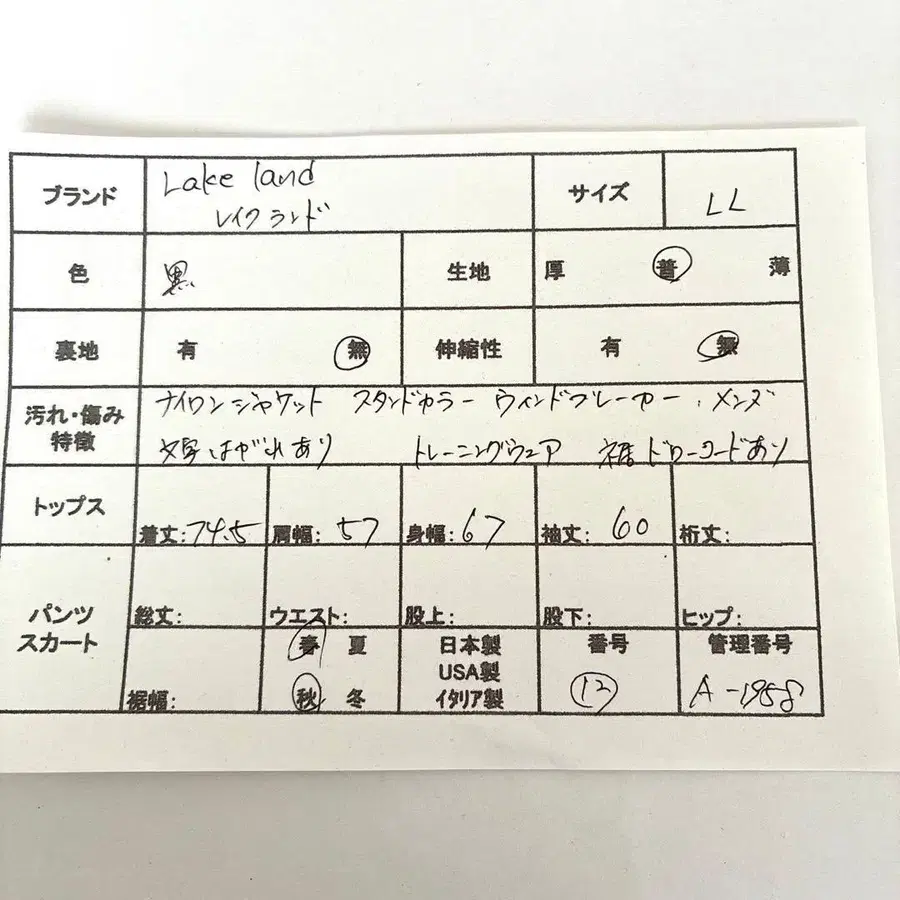 ブランド Lake land サイズ LL
レイクランド
色 黒 生地 厚 普 薄
裏地 有 無 伸縮性 有 無
汚れ・傷み ナイロンジャケット スタンドカラー ウィンドブレーカー メンズ
特徴 文字はがれあり トレーニングウェア 裾ドローコードあり
トップス 着丈:74.5 肩幅:57 身幅:67 袖丈:60 裄丈:
パンツ スカート 総丈: ウエスト: 股上: 股下: ヒップ:
裾幅: 春 夏 日本製 番号 管理番号
USA製
秋 冬 イタリア製 12 A-1958